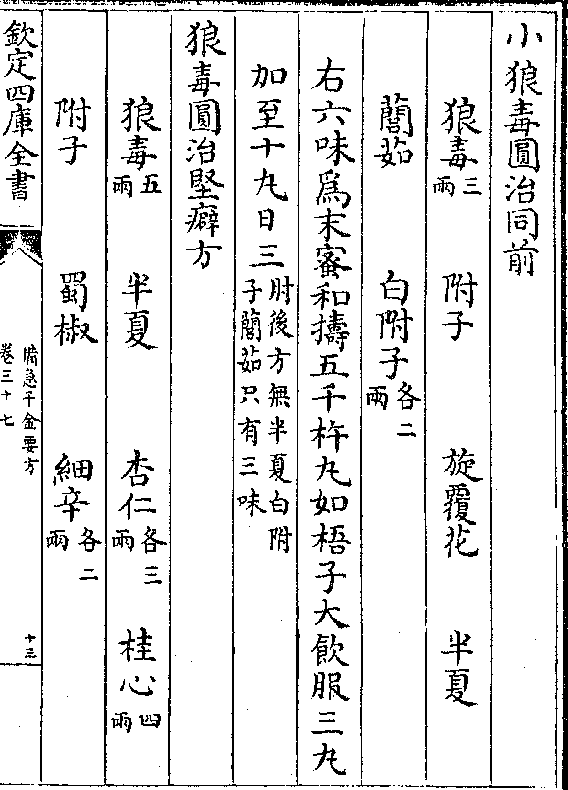 小狼毒圓治同前
狼毒三兩 附子 旋覆花 半夏
䕡茹 白附子各二兩
右六味為末蜜和擣五千杵丸如梧子大飲服三丸
加至十丸日三肘後方無半夏白附子䕡茹只有三味
狼毒圓治堅癖方
狼毒五兩 半夏 杏仁各三兩 桂心四兩
附子 蜀椒 細辛各二兩
欽定四庫全書
備急千金要方
卷三十七
十三